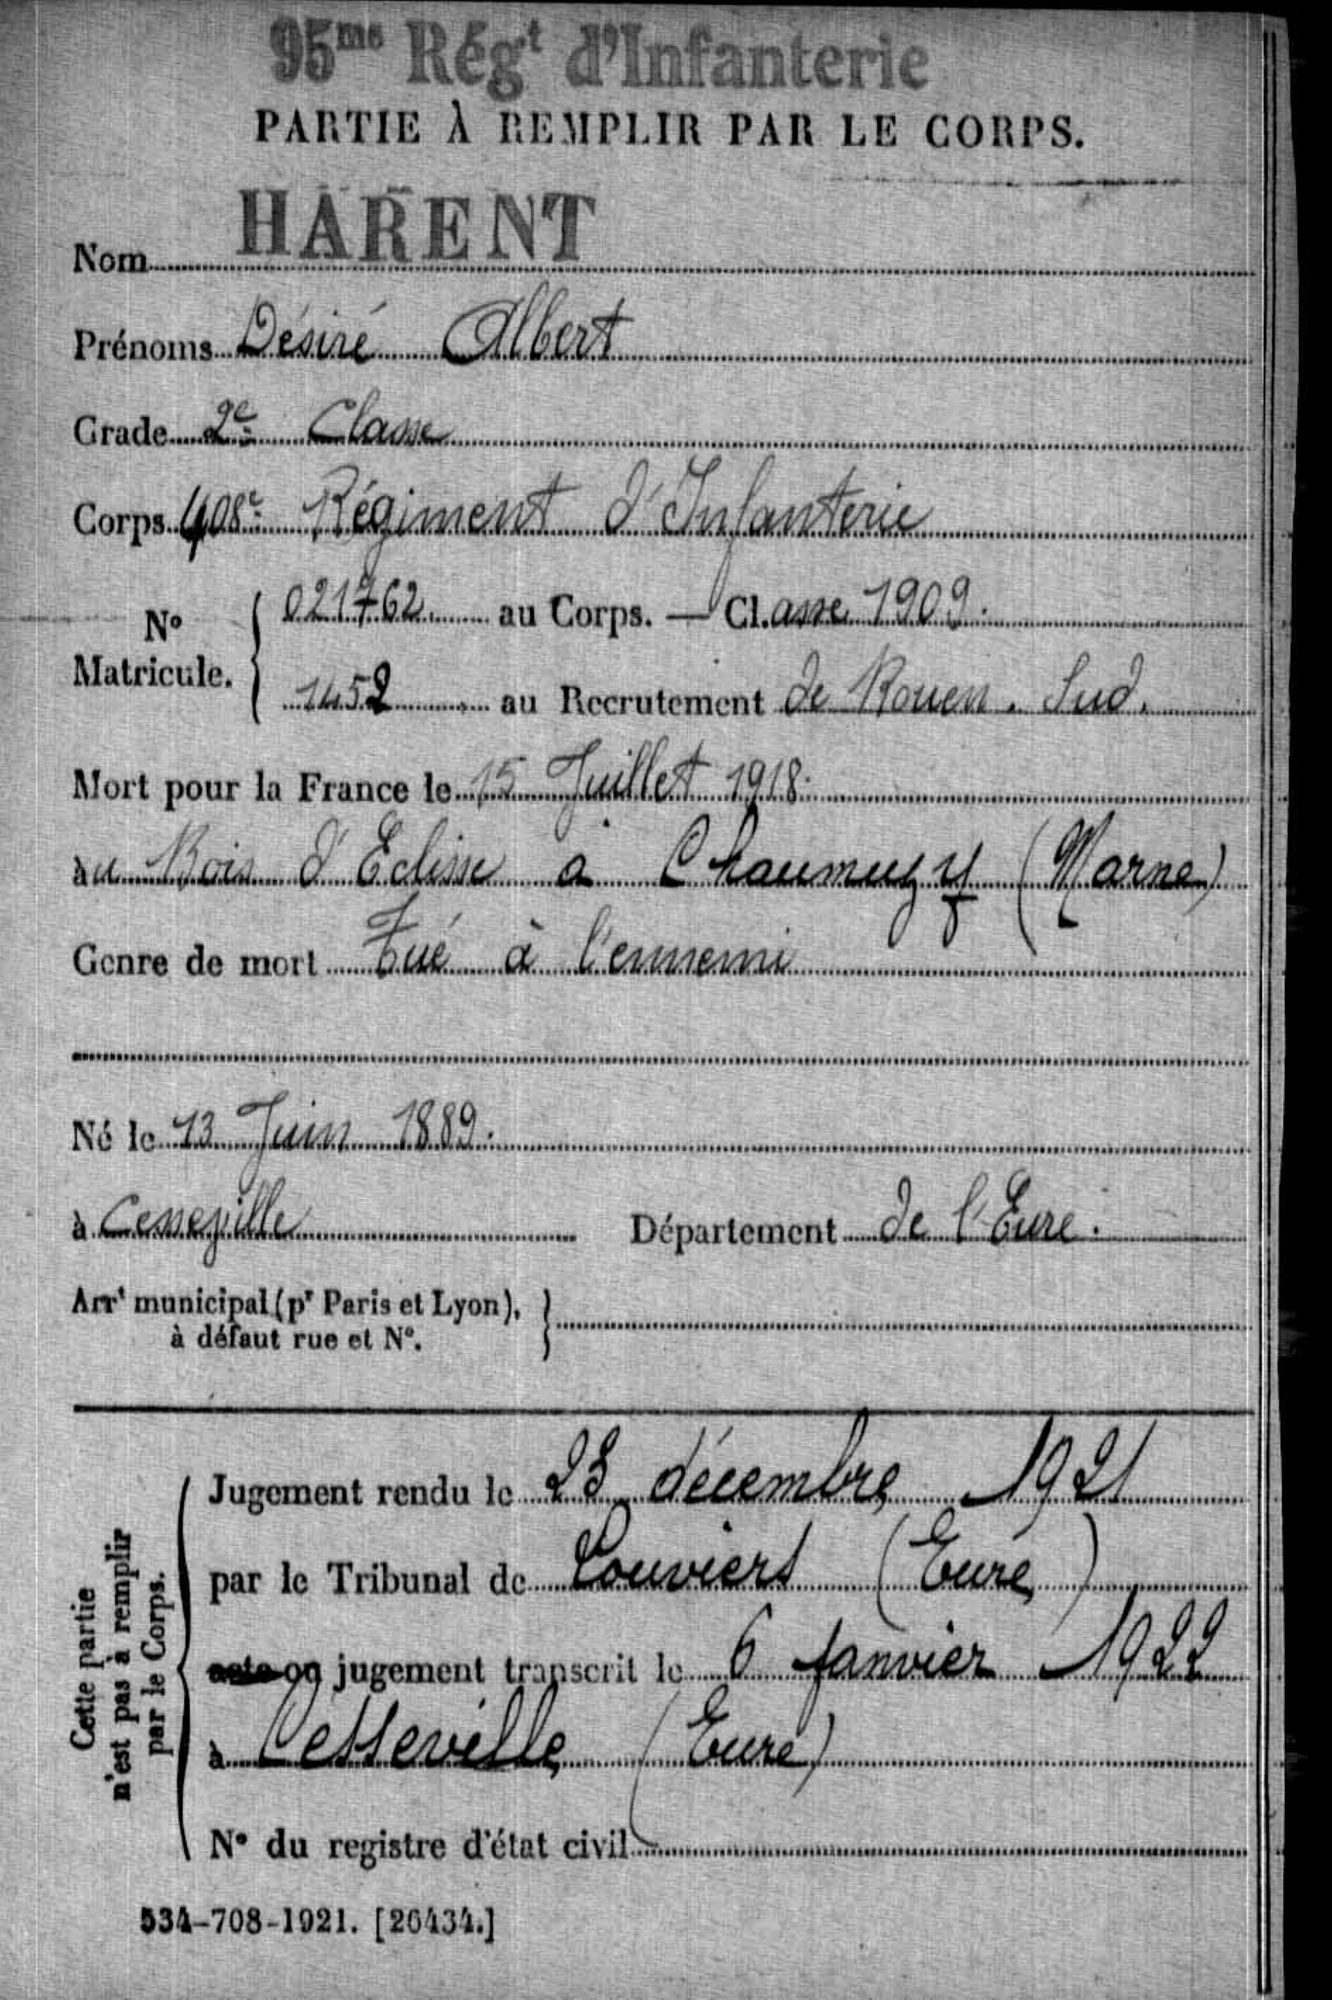 95me Régt d'Infanterie
PARTIE À REMPLIR PAR LE CORPS.
Nom HARENT
Prénoms Désiré Albert
Grade 2e Classe
Corps 408e Régiment d'Infanterie
No Matricule. { 021762 au Corps. — Cl.asse 1909.
1452 au Recrutement de Rouen. Sud.
Mort pour la France le 15 Juillet 1918.
àu Bois d'Eclisse à Chaumuzy (Marne)
Genre de mort Tué à l'ennemi
Né le 13 Juin 1889.
à Cesseville Département de l'Eure.
Arrt municipal (pr Paris et Lyon), }
à défaut rue et No.
Cette partie
n'est pas à remplir
par le Corps.
Jugement rendu le 23 décembre 1921
par le Tribunal de Louviers (Eure)
acte ou jugement transcrit le 6 janvier 1922
à Cesseville (Eure)
No du registre d'état civil
534-708-1921. [26434.]